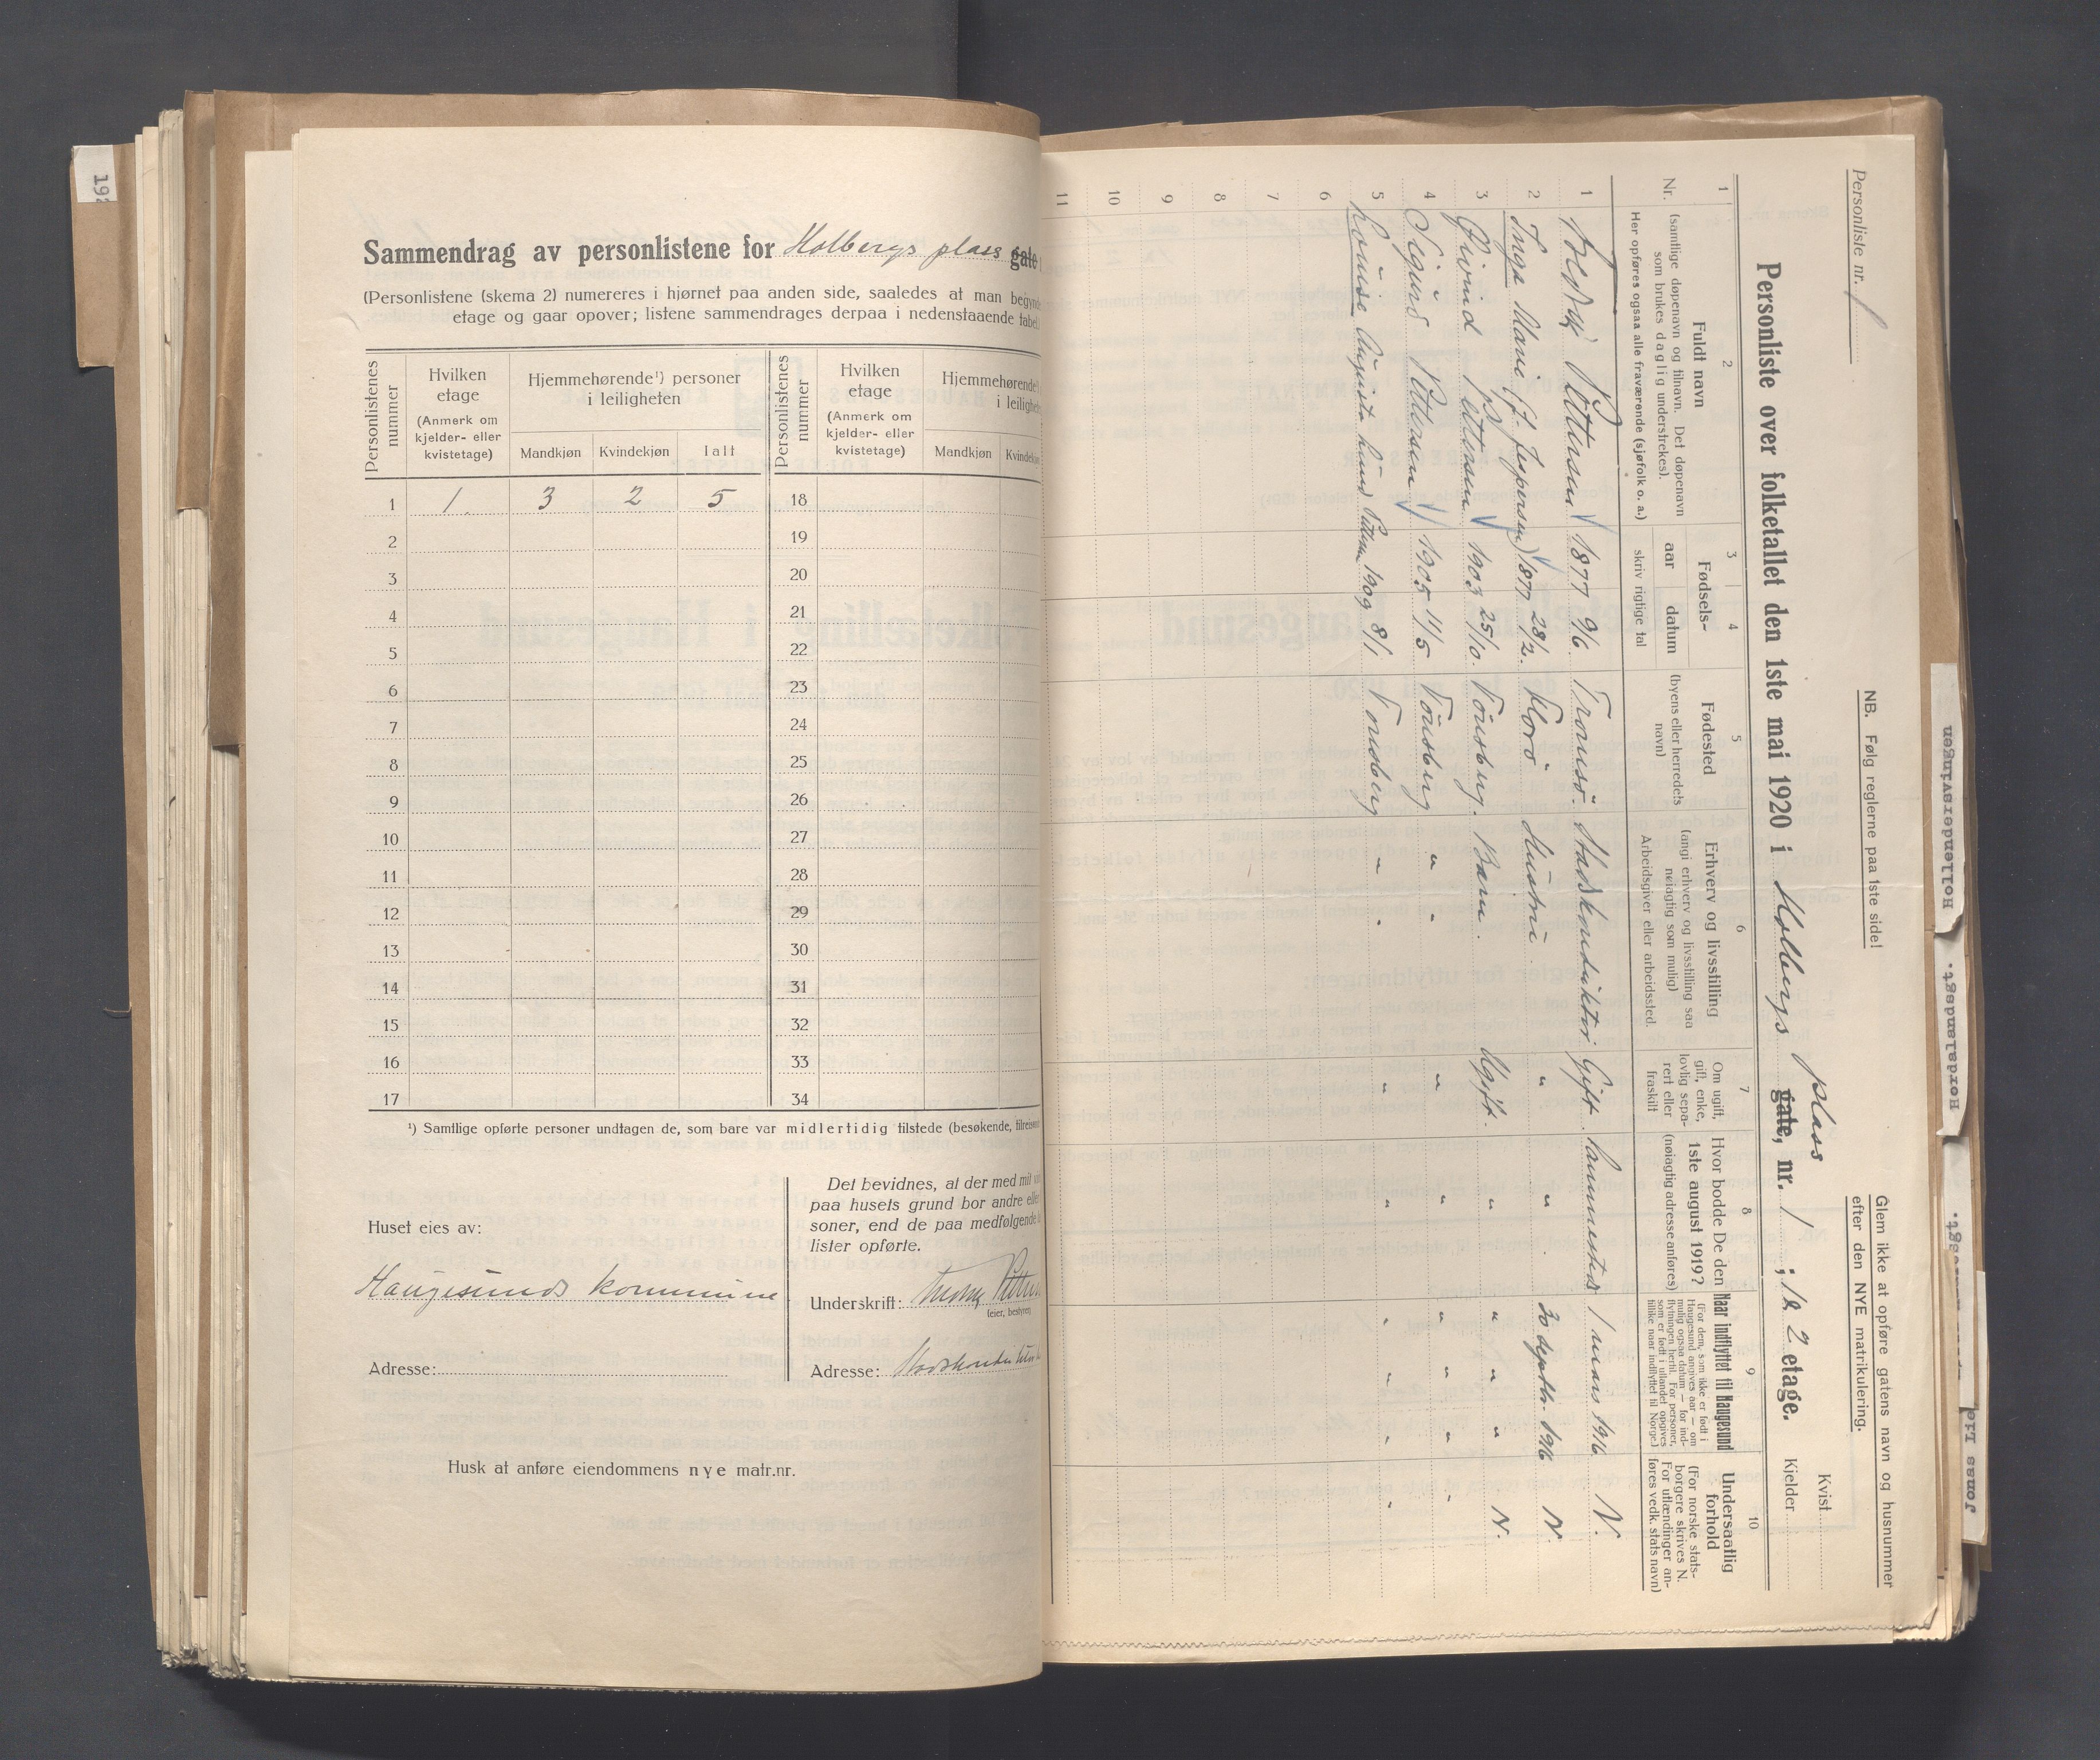 Sammendrag av personlistene for Holbergs plass gate
(Personlistene (skema 2) numereres i hjørnet paa anden side, saaledes at man begynde
etage og gaar opover; listene sammendrages derpaa i nedenstaaende tabel.
Personlistenes nummer
Hvilken etage
(Anmerk om kjelder- eller kvistetage)
Hjemmehørende¹) personer i leiligheten
Mandkjøn Kvindekjøn Ialt
Personlistenes nummer
Hvilken etage
(Anmerk om kjelder- eller kvistetage)
Hjemmehørende¹)
i leilighete
Mandkjøn Kvindekjøn
1 1. 3 2 5 18
2 19
3 20
4 21
5 22
6 23
7 24
8 25
9 26
10 27
11 28
12 29
13 30
14 31
15 32
16 33
17 34
¹) Samtlige opførte personer undtagen de, som bare var midlertidig tilstede (besøkende, tilreisend
Huset eies av:
Haugesunds kommune
Adresse:
Det bevidnes, at der med mit vi
paa husets grund bor andre elle
soner, end de paa medfølgende
lister opførte.
Underskrift:
(eier, bestyrer)
Adresse:
Husk at anføre eiendommens nye matr.nr.
192
Personliste nr. 1
NB. Følg reglerne paa 1ste side!
Glem ikke at opføre gatens navn og husnummer
efter den NYE matrikulering.
Personliste over folketallet den 1ste mai 1920 i Holbergs plass gate, nr. 1 ; 1 & 2 etage.
Kvist
Kjelder
1 2 3 4 5 6 7 8 9 10
Nr.
Fuldt navn
(samtlige døpenavn og tilnavn. Det døpenavn
som brukes daglig understrekes).
Her opføres ogsaa alle fraværende (sjøfolk o. a.)
Fødsels-
aar datum
skriv rigtige tal
Fødested
(byens eller herredets
navn)
Erhverv og livsstilling
(angi erhverv og livsstilling saa
nøiagtig som mulig)
Arbeidsgiver eller arbeidssted.
Om ugift,
gift, enke,
lovlig sepa-
rert eller
fraskilt
Hvor bodde De den
1ste august 1919?
(nøiagtig adresse anføres)
Naar indflyttet til Haugesund
(For dem, som ikke er født i
Haugesund angives aar — om
mulig ogsaa datum — for ind-
flytningen hertil. For personer,
som er født i utlandet opgives
tillike naar indflyttet til Norge.)
Undersaatlig
forhold
(For norske stats-
borgere skrives N.
For utlændinger an-
føres vedk. stats navn)
1 Pettersen 1877 9/6. Tromsö. Stadskonduktör Gift. Sammesteds 1 mars 1916 N.
2 Inga Marie (f. Jespersen) 1877 28/2. Florö Hustru " " 30 septbr. 1916 N.
3 Öivind Pettersen 1903 25/10. Tönsberg. Barn. Ugift. " " " " N.
4 Sigurd Pettersen 1905 11/5 Tönsberg " " " " " " " "
5 Louise Augusta Lund Pettersen 1909 8/1 Tönsberg " " " " " " " "
6
7
8
9
10
11
Hollenderavingen
Hordalandsgt.
Jonas Lie